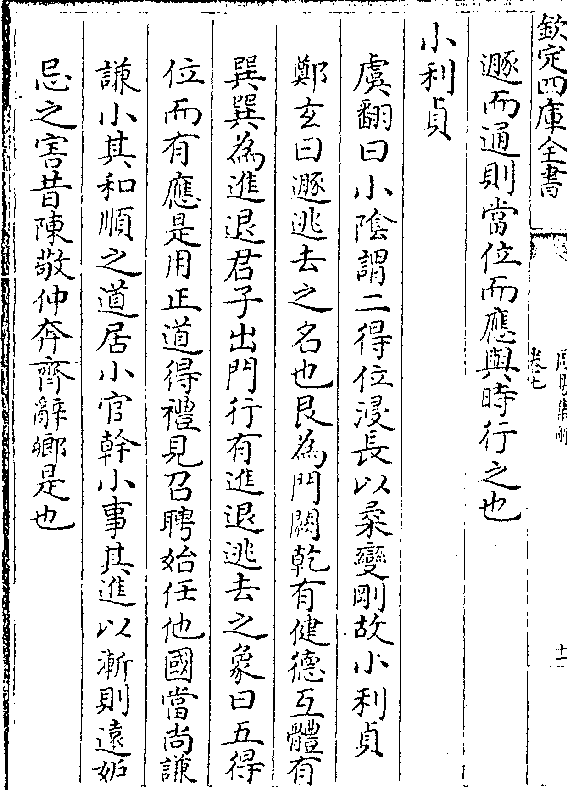 欽定四庫全書
卷七
十一
遯而通則當位而應與時行之也
小利貞
虞翻曰小陰謂二得位浸長以柔變剛故小利貞
鄭玄曰遯逃去之名也艮為門闕乾有健德互體有
巽巽為進退君子出門行有進退逃去之象曰五得
位而有應是用正道得禮見召聘始任他國當尚謙
謙小其和順之道居小官幹小事其進以漸則遠妬
忌之害昔陳敬仲奔齊辭卿是也